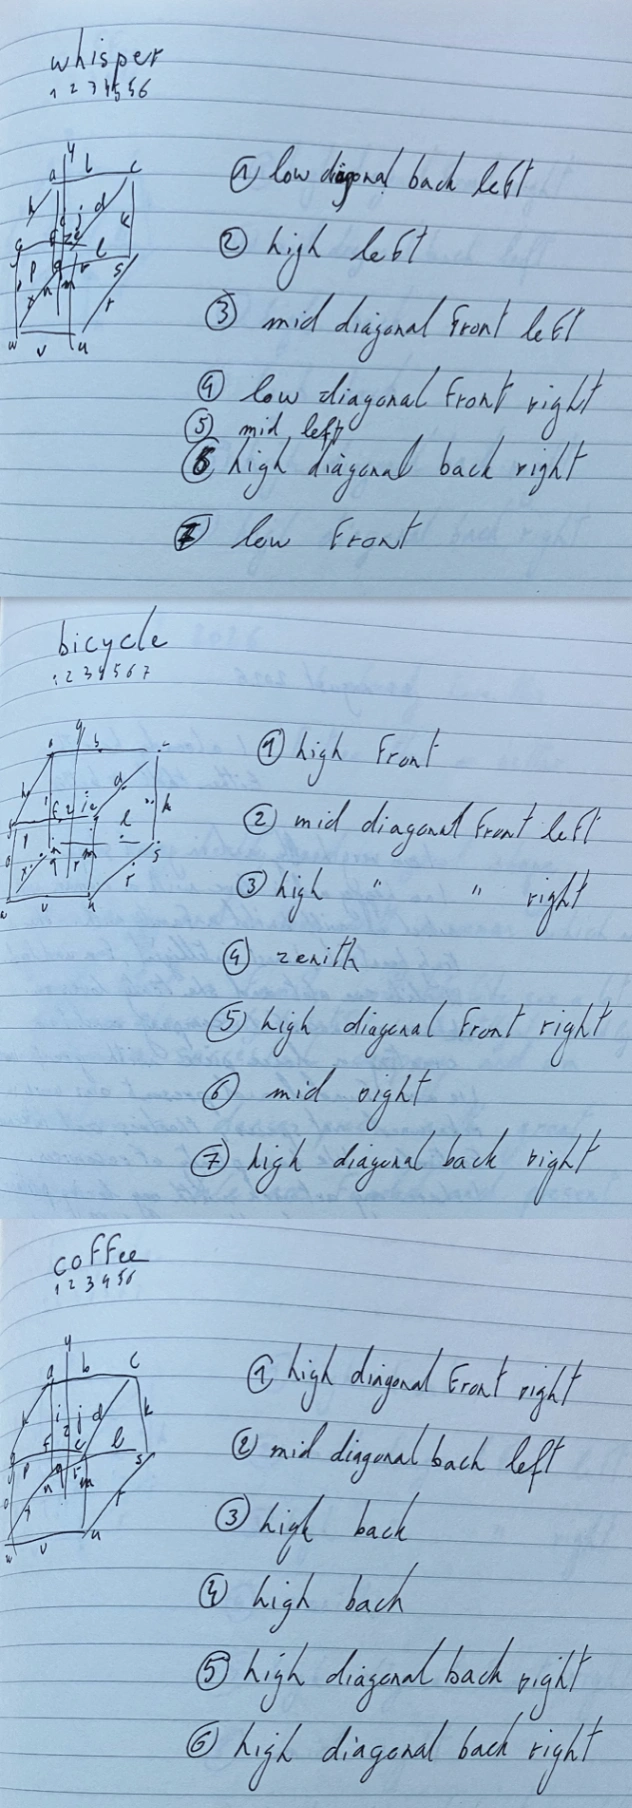 whisper
1 2 3 4 5 5 6
① low diagonal back left
② high left
③ mid diagonal Front left
④ low diagonal Front right
⑤ mid left
⑥ high diagonal back right
⑦ low Front
bicycle
1 2 3 4 5 6 7
① high Front
② mid diagonal Front left
③ high " " right
④ zenith
⑤ high diagonal Front right
⑥ mid right
⑦ high diagonal back right
coffee
1 2 3 4 5 6
① high diagonal Front right
② mid diagonal back left
③ high back
④ high back
⑤ high diagonal back right
⑥ high diagonal back right